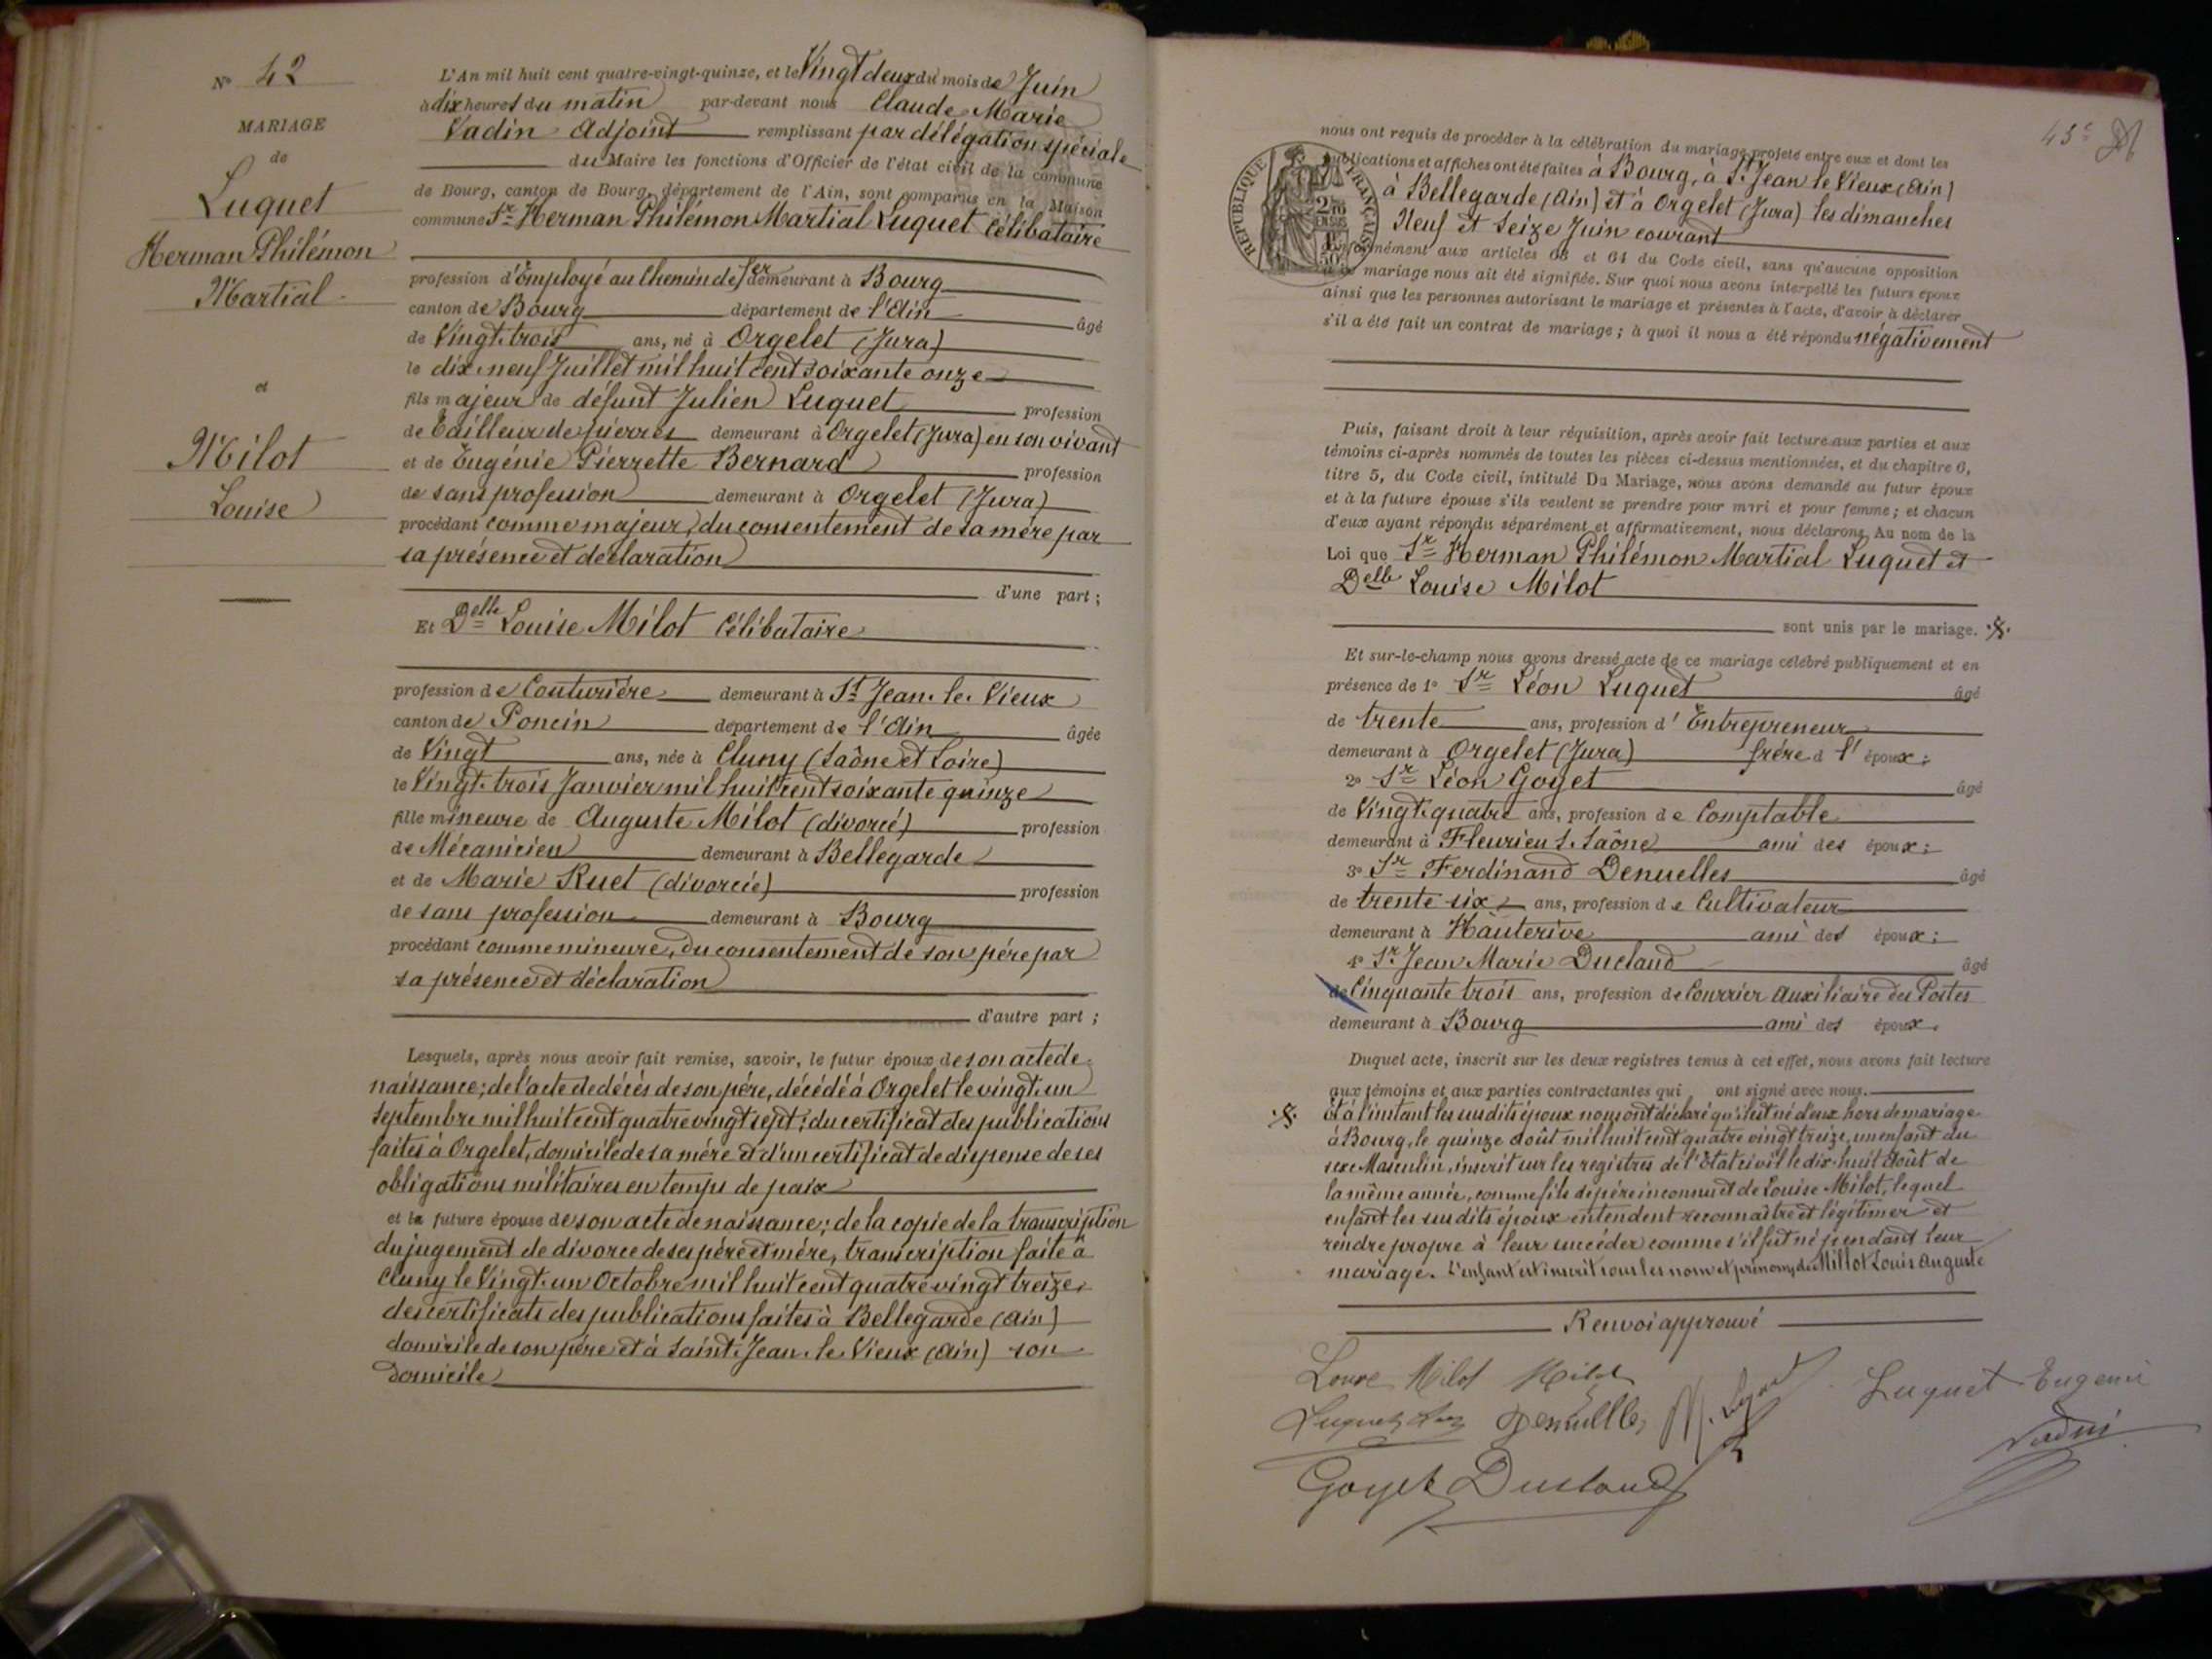 N° 42
MARIAGE
de
Luquet
Herman Philémon
Martial
et
Milot
Louise
L'An mil huit cent quatre-vingt-quinze, et le Vingt deux du mois de Juin
à dix heures du matin par-devant nous Claude Marie
Vadin Adjoint remplissant par délégation spéciale
du Maire les fonctions d'Officier de l'état civil de la commune
de Bourg, canton de Bourg, département de l'Ain, sont comparus en la Maison
commune Sr Herman Philémon Martial Luquet Célibataire
profession d'Employé au Chemin de fer demeurant à Bourg
canton de Bourg département de l'Ain âgé
de Vingt-trois ans, né à Orgelet (Jura)
le dix-neuf Juillet mil huit cent soixante onze
fils majeur de défunt Julien Luquet profession
de Tailleur de pierres demeurant à Orgelet (Jura) en son vivant
et de Eugénie Pierrette Bernard profession
de sans profession demeurant à Orgelet (Jura)
procédant comme majeur, du consentement de sa mère par
sa présence et déclaration
d'une part ;
Et Delle Louise Milot Célibataire
profession de Couturière demeurant à St Jean-le-Vieux
canton de Poncin département de l'Ain âgée
de Vingt ans, née à Cluny (Saône et Loire)
le Vingt-trois Janvier mil huit cent soixante quinze
fille mineure de Auguste Milot (divorcé) profession
de Mécanicien demeurant à Bellegarde
et de Marie Ruet (divorcée) profession
de sans profession demeurant à Bourg
procédant comme mineure, du consentement de son père par
sa présence et déclaration
d'autre part ;
Lesquels, après nous avoir fait remise, savoir, le futur époux de son acte de
naissance ; de l'acte de décès de son père, décédé à Orgelet le vingt-un
Septembre mil huit cent quatre vingt sept ; du certificat des publications
faites à Orgelet, domicile de sa mère et d'un certificat de dispense de ses
obligations militaires en temps de paix
et la future épouse de son acte de naissance ; de la copie de la transcription
du jugement de divorce de ses père et mère, transcription faite à
Cluny le Vingt-un Octobre mil huit cent quatre vingt treize,
des certificats des publications faites à Bellegarde (Ain)
domicile de son père et à Saint-Jean-le-Vieux (Ain) son
Domicile
45e
RÉPUBLIQUE FRANÇAISE
nous ont requis de procéder à la célébration du mariage projeté entre eux et dont les
publications et affiches ont été faites à Bourg, à St Jean le Vieux (Ain)
à Bellegarde (Ain) et à Orgelet (Jura) les dimanches
Neuf et Seize Juin courant
conformément aux articles 63 et 64 du Code civil, sans qu'aucune opposition
mariage nous ait été signifiée. Sur quoi nous avons interpellé les futurs époux
ainsi que les personnes autorisant le mariage et présentes à l'acte, d'avoir à déclarer
s'il a été fait un contrat de mariage ; à quoi il nous a été répondu négativement
Puis, faisant droit à leur réquisition, après avoir fait lecture aux parties et aux
témoins ci-après nommés de toutes les pièces ci-dessus mentionnées, et du chapitre 6,
titre 5, du Code civil, intitulé Du Mariage, nous avons demandé au futur époux
et à la future épouse s'ils veulent se prendre pour mari et pour femme ; et chacun
d'eux ayant répondu séparément et affirmativement, nous déclarons Au nom de la
Loi que Sr Herman Philémon Martial Luquet et
Delle Louise Milot
sont unis par le mariage.
Et sur-le-champ nous avons dressé acte de ce mariage célébré publiquement et en
présence de 1° Sr Léon Luquet âgé
de trente ans, profession d'Entrepreneur
demeurant à Orgelet (Jura) frère d l'époux ;
2° Sr Léon Goyet âgé
de Vingt-quatre ans, profession de Comptable
demeurant à Fleurieu s. Saône ami des époux ;
3° Sr Ferdinand Denuelles âgé
de trente-six ans, profession de Cultivateur
demeurant à Hauterive ami des époux ;
4° Sr Jean Marie Ducland âgé
de Cinquante trois ans, profession de Courrier Auxiliaire des Postes
demeurant à Bourg ami des époux.
Duquel acte, inscrit sur les deux registres tenus à cet effet, nous avons fait lecture
aux témoins et aux parties contractantes qui ont signé avec nous.
Et à l'instant les susdits époux nous ont déclaré qu'il est né d'eux, hors de mariage
à Bourg, le quinze Août mil huit cent quatre vingt treize, un enfant du
sexe Masculin, inscrit sur les registres de l'État civil le dix-huit Août de
la même année, comme fils de père inconnu et de Louise Milot, lequel
enfant les susdits époux entendent reconnaître et légitimer et
rendre propre à leur succéder comme s'il fût né pendant leur
mariage. L'enfant est inscrit sous les nom et prénoms de Millot Louis Auguste
Renvoi approuvé
Louise Milot Milot
Luquet Eugénie
Luquet Denuelles
Vadin
Goyet Ducland